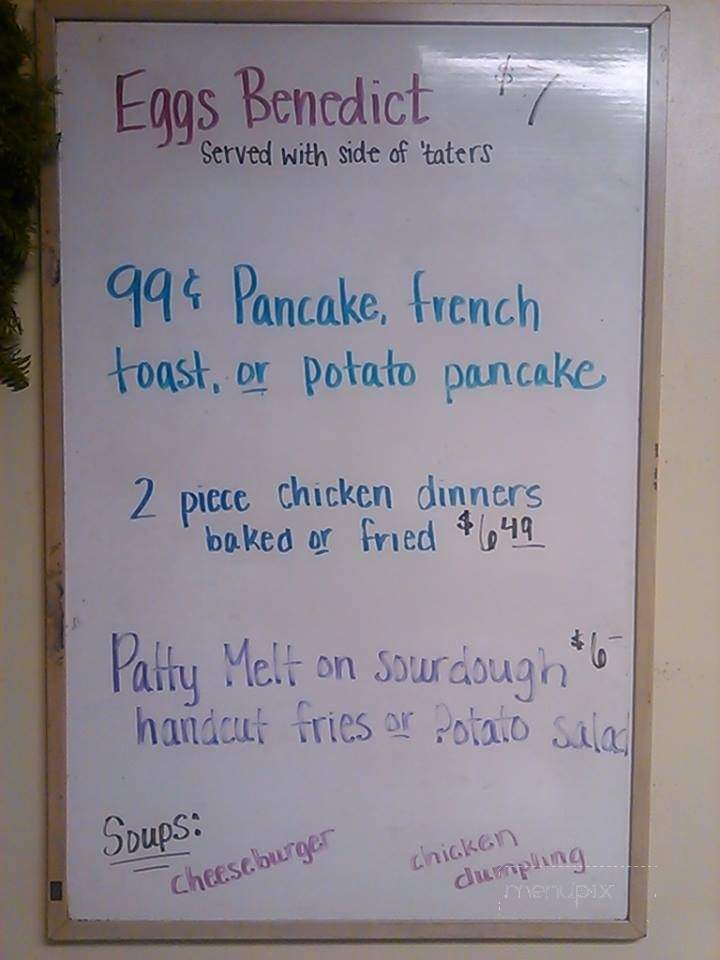 Eggs Benedict $7
Served with side of 'taters
99¢ Pancake, french
toast, or potato pancake
2 piece chicken dinners
baked or fried $6 49
Patty Melt on sourdough $6-
handcut fries or Potato salad
Soups:
cheeseburger
chicken
dumpling
menupix